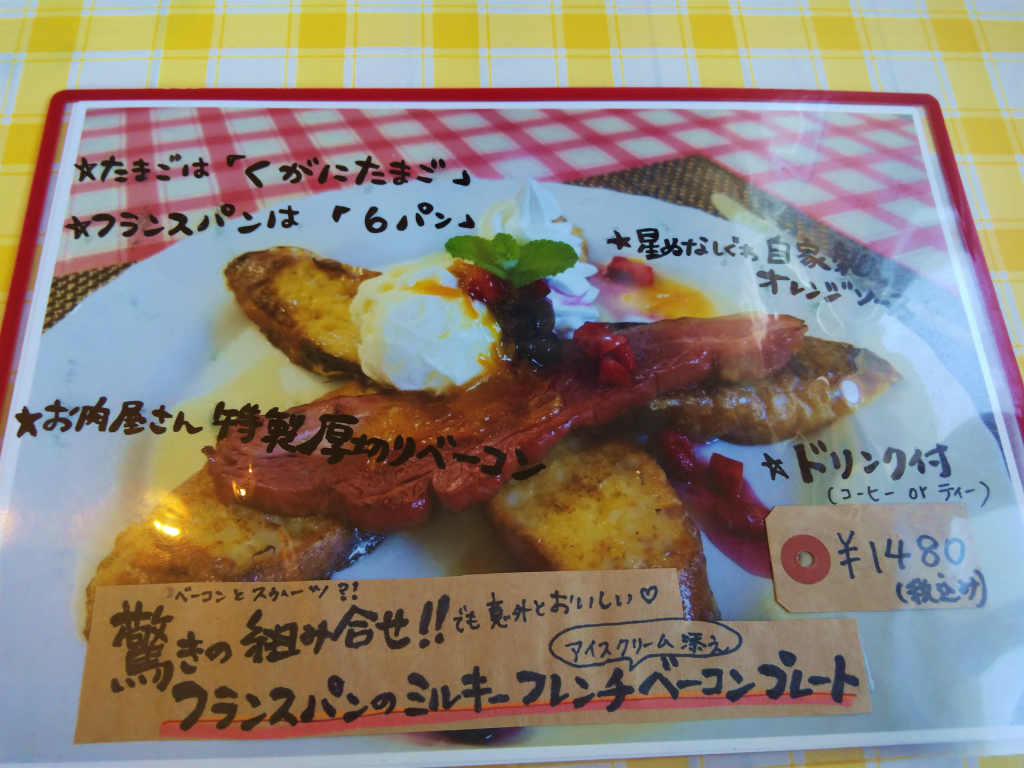 ★たまごは「くがにたまご」
★フランスパンは「6パン」
★星ぬなしぐゎ自家製
オレンジソース
★お肉屋さん特製厚切りベーコン
★ドリンク付
(コーヒー or ティー)
¥1480
(税込み)
ベーコンとスウィーツ?!
驚きの組み合せ!!でも意外とおいしい♡
アイスクリーム添え
フランスパンのミルキーフレンチベーコンプレート